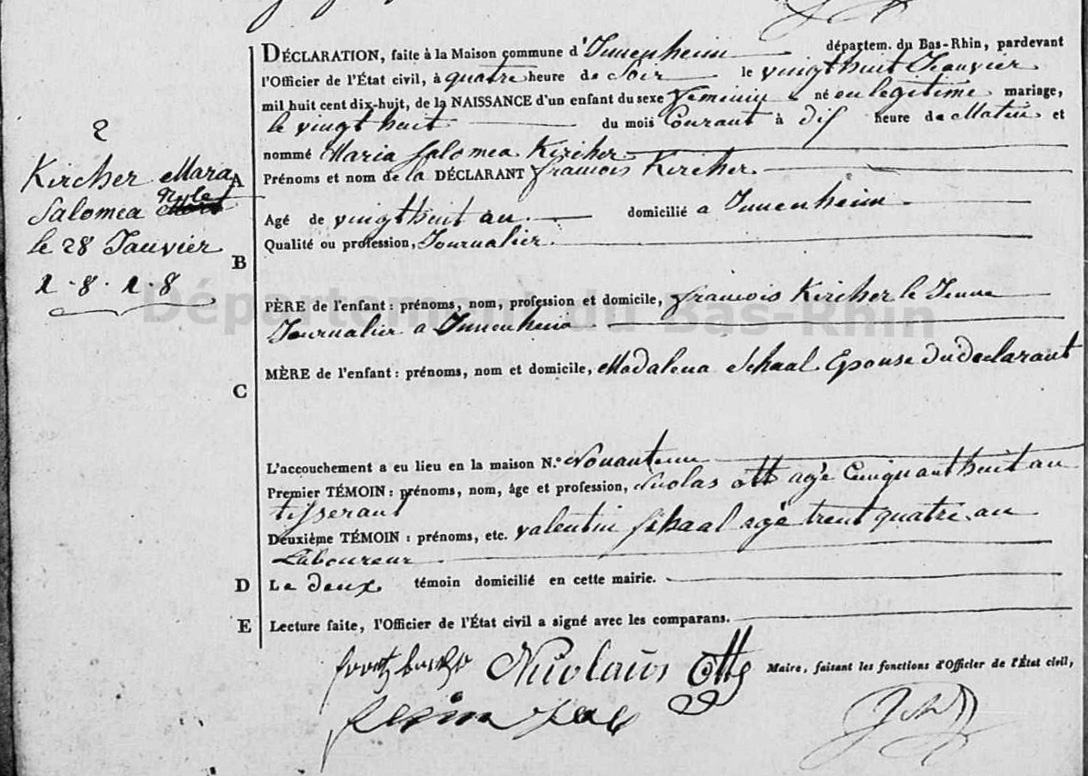 2
Kircher Maria
Salomea
le 28 Janvier
1.8.1.8
A
B
C
D
E
DÉCLARATION, faite à la Maison commune d'Innenheim départem. du Bas-Rhin, pardevant
l'Officier de l'État civil, à quatre heure de Soir le vingt huit Jeanvier
mil huit cent dix-huit, de la NAISSANCE d'un enfant du sexe feminin né en legitime mariage,
le vingt huit du mois Courant à dix heure de Matin et
nommé Maria Salomea Kircher
Prénoms et nom de la DÉCLARANT francois Kircher
Agé de vingt huit an domicilié a Innenheim
Qualité ou profession, Journalier
PÈRE de l'enfant: prénoms, nom, profession et domicile, francois Kircher le Jeune
Journalier a Innenheim
MÈRE de l'enfant: prénoms, nom et domicile, Madalena Schaal Epouse du declarant
L'accouchement a eu lieu en la maison N.º
Premier TÉMOIN: prénoms, nom, âge et profession, Nicolas ott agé Cinquant huit an
tisserant
Deuxième TÉMOIN: prénoms, etc. valentin Schaal agé trent quatre an
Laboureur
Le deux témoin domicilié en cette mairie.
Lecture faite, l'Officier de l'État civil a signé avec les comparans.
Nicolaus Ott Maire, faisant les fonctions d'Officier de l'État civil,
Département du Bas-Rhin